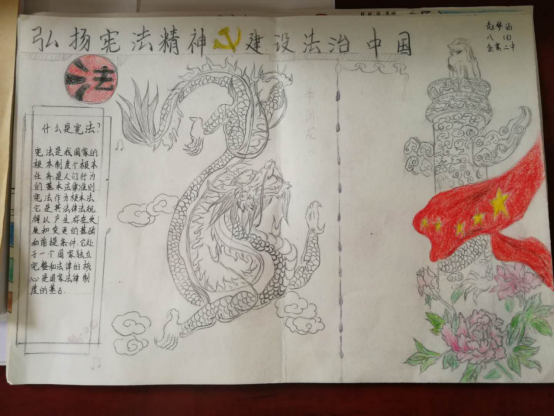 弘扬宪法精神 建设法治中国
法
什么是宪法?
宪法是我国家的
根本制度个根本
任务是人们行为
的基本法律准则
宪法作为根本法
它是其法律法规
得以产生存在发
展和变更的基础
和前提条件.它处
于一个国家独立
完整和法律的核
心是国家法律制
度的基石